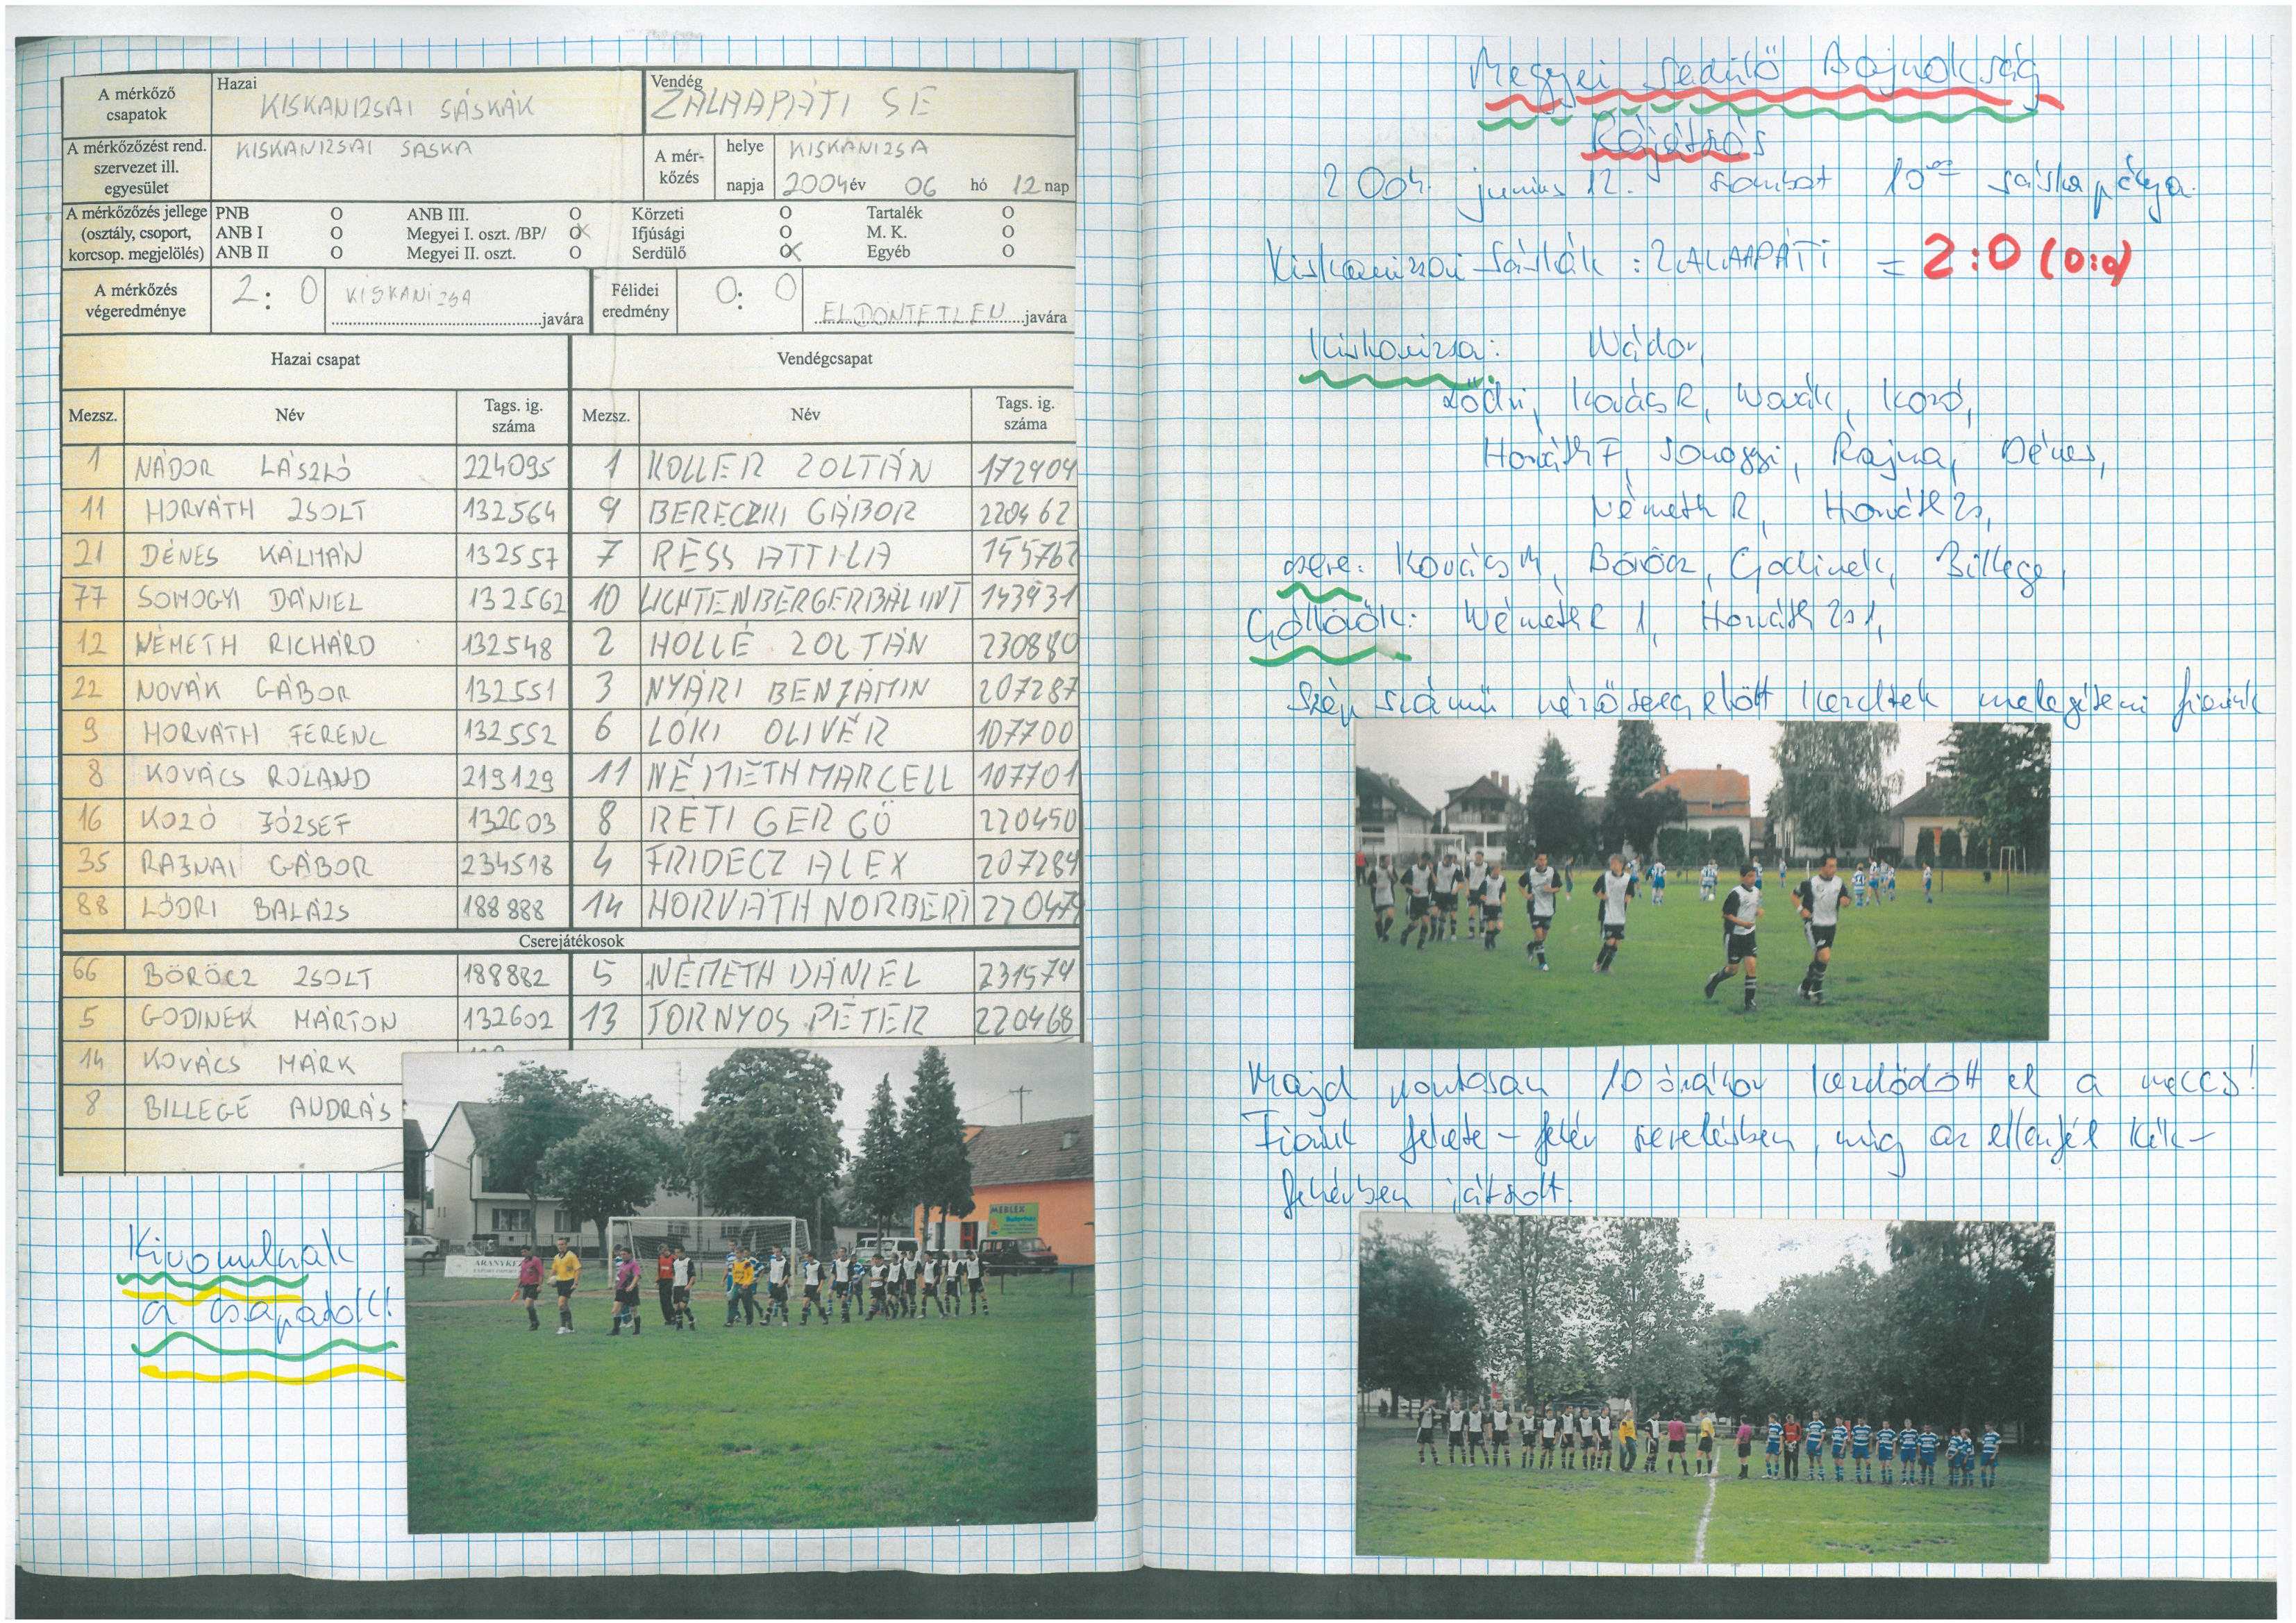 A mérkőző csapatok
Hazai
KISKANIZSAI SÁSKÁK
Vendég
ZALAAPÁTI SE
A mérkőzőzést rend. szervezet ill. egyesület
KISKANIZSAI SÁSKA
A mérkőzés
helye KISKANIZSA
napja 2004 év 06 hó 12 nap
A mérkőzőzés jellege (osztály, csoport, korcsop. megjelölés)
PNB O ANB III. O Körzeti O Tartalék O
ANB I O Megyei I. oszt. /BP/ O Ifjúsági O M. K. O
ANB II O Megyei II. oszt. O Serdülő O Egyéb O
A mérkőzés végeredménye 2 : 0 KISKANIZSA javára
Félidei eredmény 0 : 0 ELDÖNTETLEN javára
Hazai csapat Vendégcsapat
Mezsz. Név Tags. ig. száma Mezsz. Név Tags. ig. száma
1 NÁDOR LÁSZLÓ 224095 1 KOLLER ZOLTÁN 172404
11 HORVÁTH ZSOLT 132564 9 BERECZKI GÁBOR 220462
21 DÉNES KÁLMÁN 132557 7 RESS ATTILA
77 SOMOGYI DÁNIEL 132562 10 LICHTENBERGER BÁLINT 143931
12 NÉMETH RICHÁRD 132548 2 HOLLÉ ZOLTÁN 230880
22 NOVÁK GÁBOR 132551 3 NYÁRI BENJAMIN 207287
9 HORVÁTH FERENC 132552 6 LÓKI OLIVÉR 107700
8 KOVÁCS ROLAND 219129 11 NÉMETH MARCELL 107701
16 KOZÓ JÓZSEF 132603 8 RÉTI GERGŐ 220450
35 RAJNAI GÁBOR 234518 4 FRIDECZ ALEX 207284
88 LŐDRI BALÁZS 188888 14 HORVÁTH NORBERT
Cserejátékosok
66 BÖRÖCZ ZSOLT 188882 5 NÉMETH DÁNIEL 231574
5 GODINEK MÁRTON 132602 13 TORNYOS PÉTER 220468
14 KOVÁCS MÁRK
8 BILLEGE ANDRÁS
Kivonulnak
a csapatok!
ARANYKE
MÉRLEG
Megyei Serdülő Bajnokság
Rájátszás
2004. június 12. szombat 10⁰⁰ Sáska pálya.
Kiskanizsai Sáskák : ZALAAPÁTI = 2:0 (0:0)
Kiskanizsa: Nádor,
Lődri, Kovács R, Novák, Kozó,
Horváth F, Somogyi, Rajna, Dénes,
Németh R, Horváth Zs,
csere: Kovács M, Böröcz, Godinek, Billege,
Góllövők: Németh R 1, Horváth Zs 1,
Szép számú nézősereg előtt kezdtek melegíteni fiaink
Majd pontosan 10 órakor kezdődött el a meccs!
Fiaink fekete-fehér szerelésben, míg az ellenfél kék-
fehérben játszott.